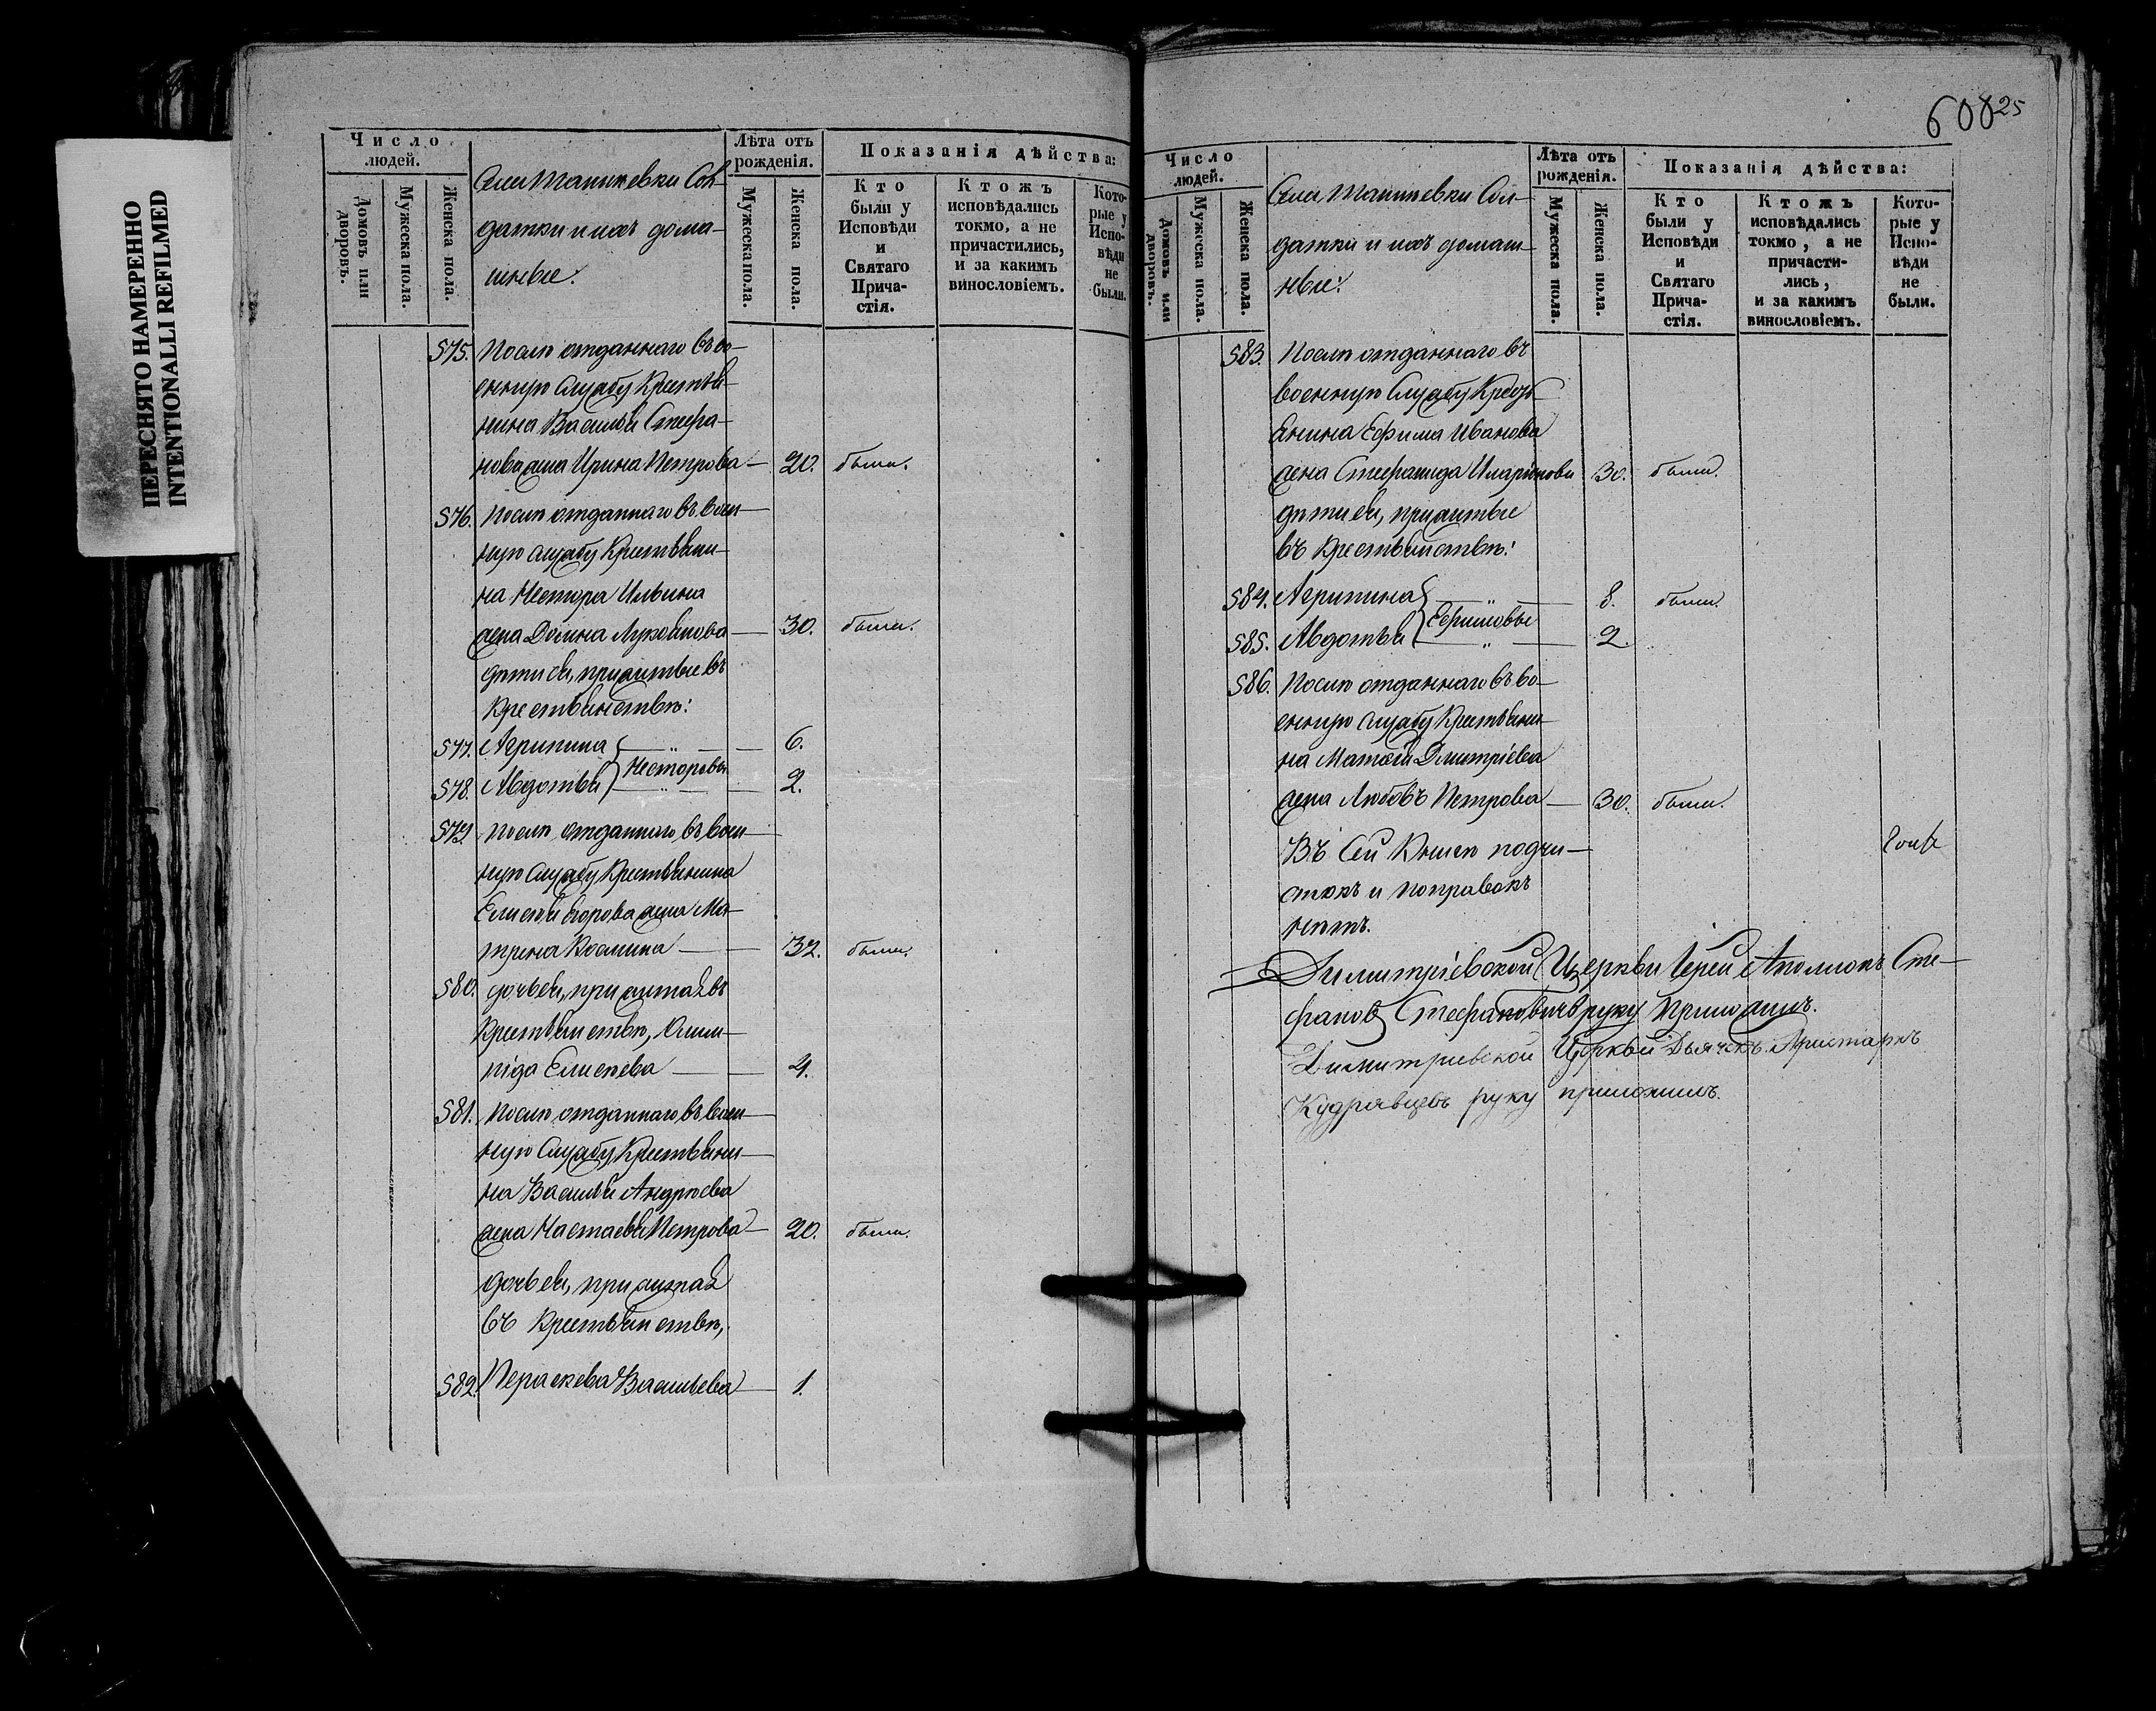 ПЕРЕСНЯТО НАМЕРЕННО
INTENTIONALLI REFILMED
Число людей.
Домовъ или дворовъ.
Мужеска пола.
Женска пола.
Села Сол-
датки и ихъ дома-
шніе.
Лѣта отъ рожденія.
Мужеска пола.
Женска пола.
Показанія дѣйства:
Кто были у Исповѣди и Святаго Прича-стія.
Ктожъ исповѣдались токмо, а не причастились, и за какимъ винословіемъ.
Кото-рые у Испо-вѣди не были.
575. Послѣ отданнаго въ во-
енную службу крестья-
нина Василья Стефа-
нова жена Ирина Петрова — 20. была.
576. Послѣ отданнаго въ воен-
ную службу крестьяни-
на Нестора Ильина
жена Домна Лукьянова — 30. была.
дѣти ея, прижитые въ
крестьянствѣ:
577. Агрипина — „ — 6.
Несторовы
578. Авдотья — „ — 2.
579. Послѣ отданнаго въ воен-
ную службу крестьянина
Елисея Егорова жена Ма-
трена Козмина — 32. была.
580. дочь ея, прижитая въ
крестьянствѣ, Олим-
піда Елисеева — 4.
581. Послѣ отданнаго въ воен-
ную службу крестьяни-
на Василья Андреева
жена Настасья Петрова — 20. была.
дочь ея, прижитая
въ крестьянствѣ,
582. Пераскева Васильева — 1.
60825
Число людей.
Домовъ или дворовъ.
Мужеска пола.
Женска пола.
Села Сол-
датки и ихъ домаш-
ніе.
Лѣта отъ рожденія.
Мужеска пола.
Женска пола.
Показанія дѣйства:
Кто были у Исповѣди и Святаго Прича-стія.
Ктожъ исповѣдались токмо, а не причасти-лись, и за какимъ винословіемъ.
Кото-рые у Испо-вѣди не были.
583. Послѣ отданнаго въ
военную службу кресть-
янина Ефима Иванова
жена Стефанида Иларіонова 30. была.
дѣти ея, прижитые
въ крестьянствѣ:
584. Агрипина — „ — 8. была.
Ефимовы
585. Авдотья — „ — 2.
586. Послѣ отданнаго въ во-
енную службу крестьяни-
на Матѳея Дмитріева
жена Любовь Петрова — 30. была.
Въ сей книгѣ подчи-
стокъ и поправокъ
нѣтъ.
Димитріевской Церкви Іерей Аполлонъ Сте-
фановъ Стефановичъ руку приложилъ.
Димитриевской Церкви Дьячекъ Аристархъ
Кудрявцевъ руку приложилъ.